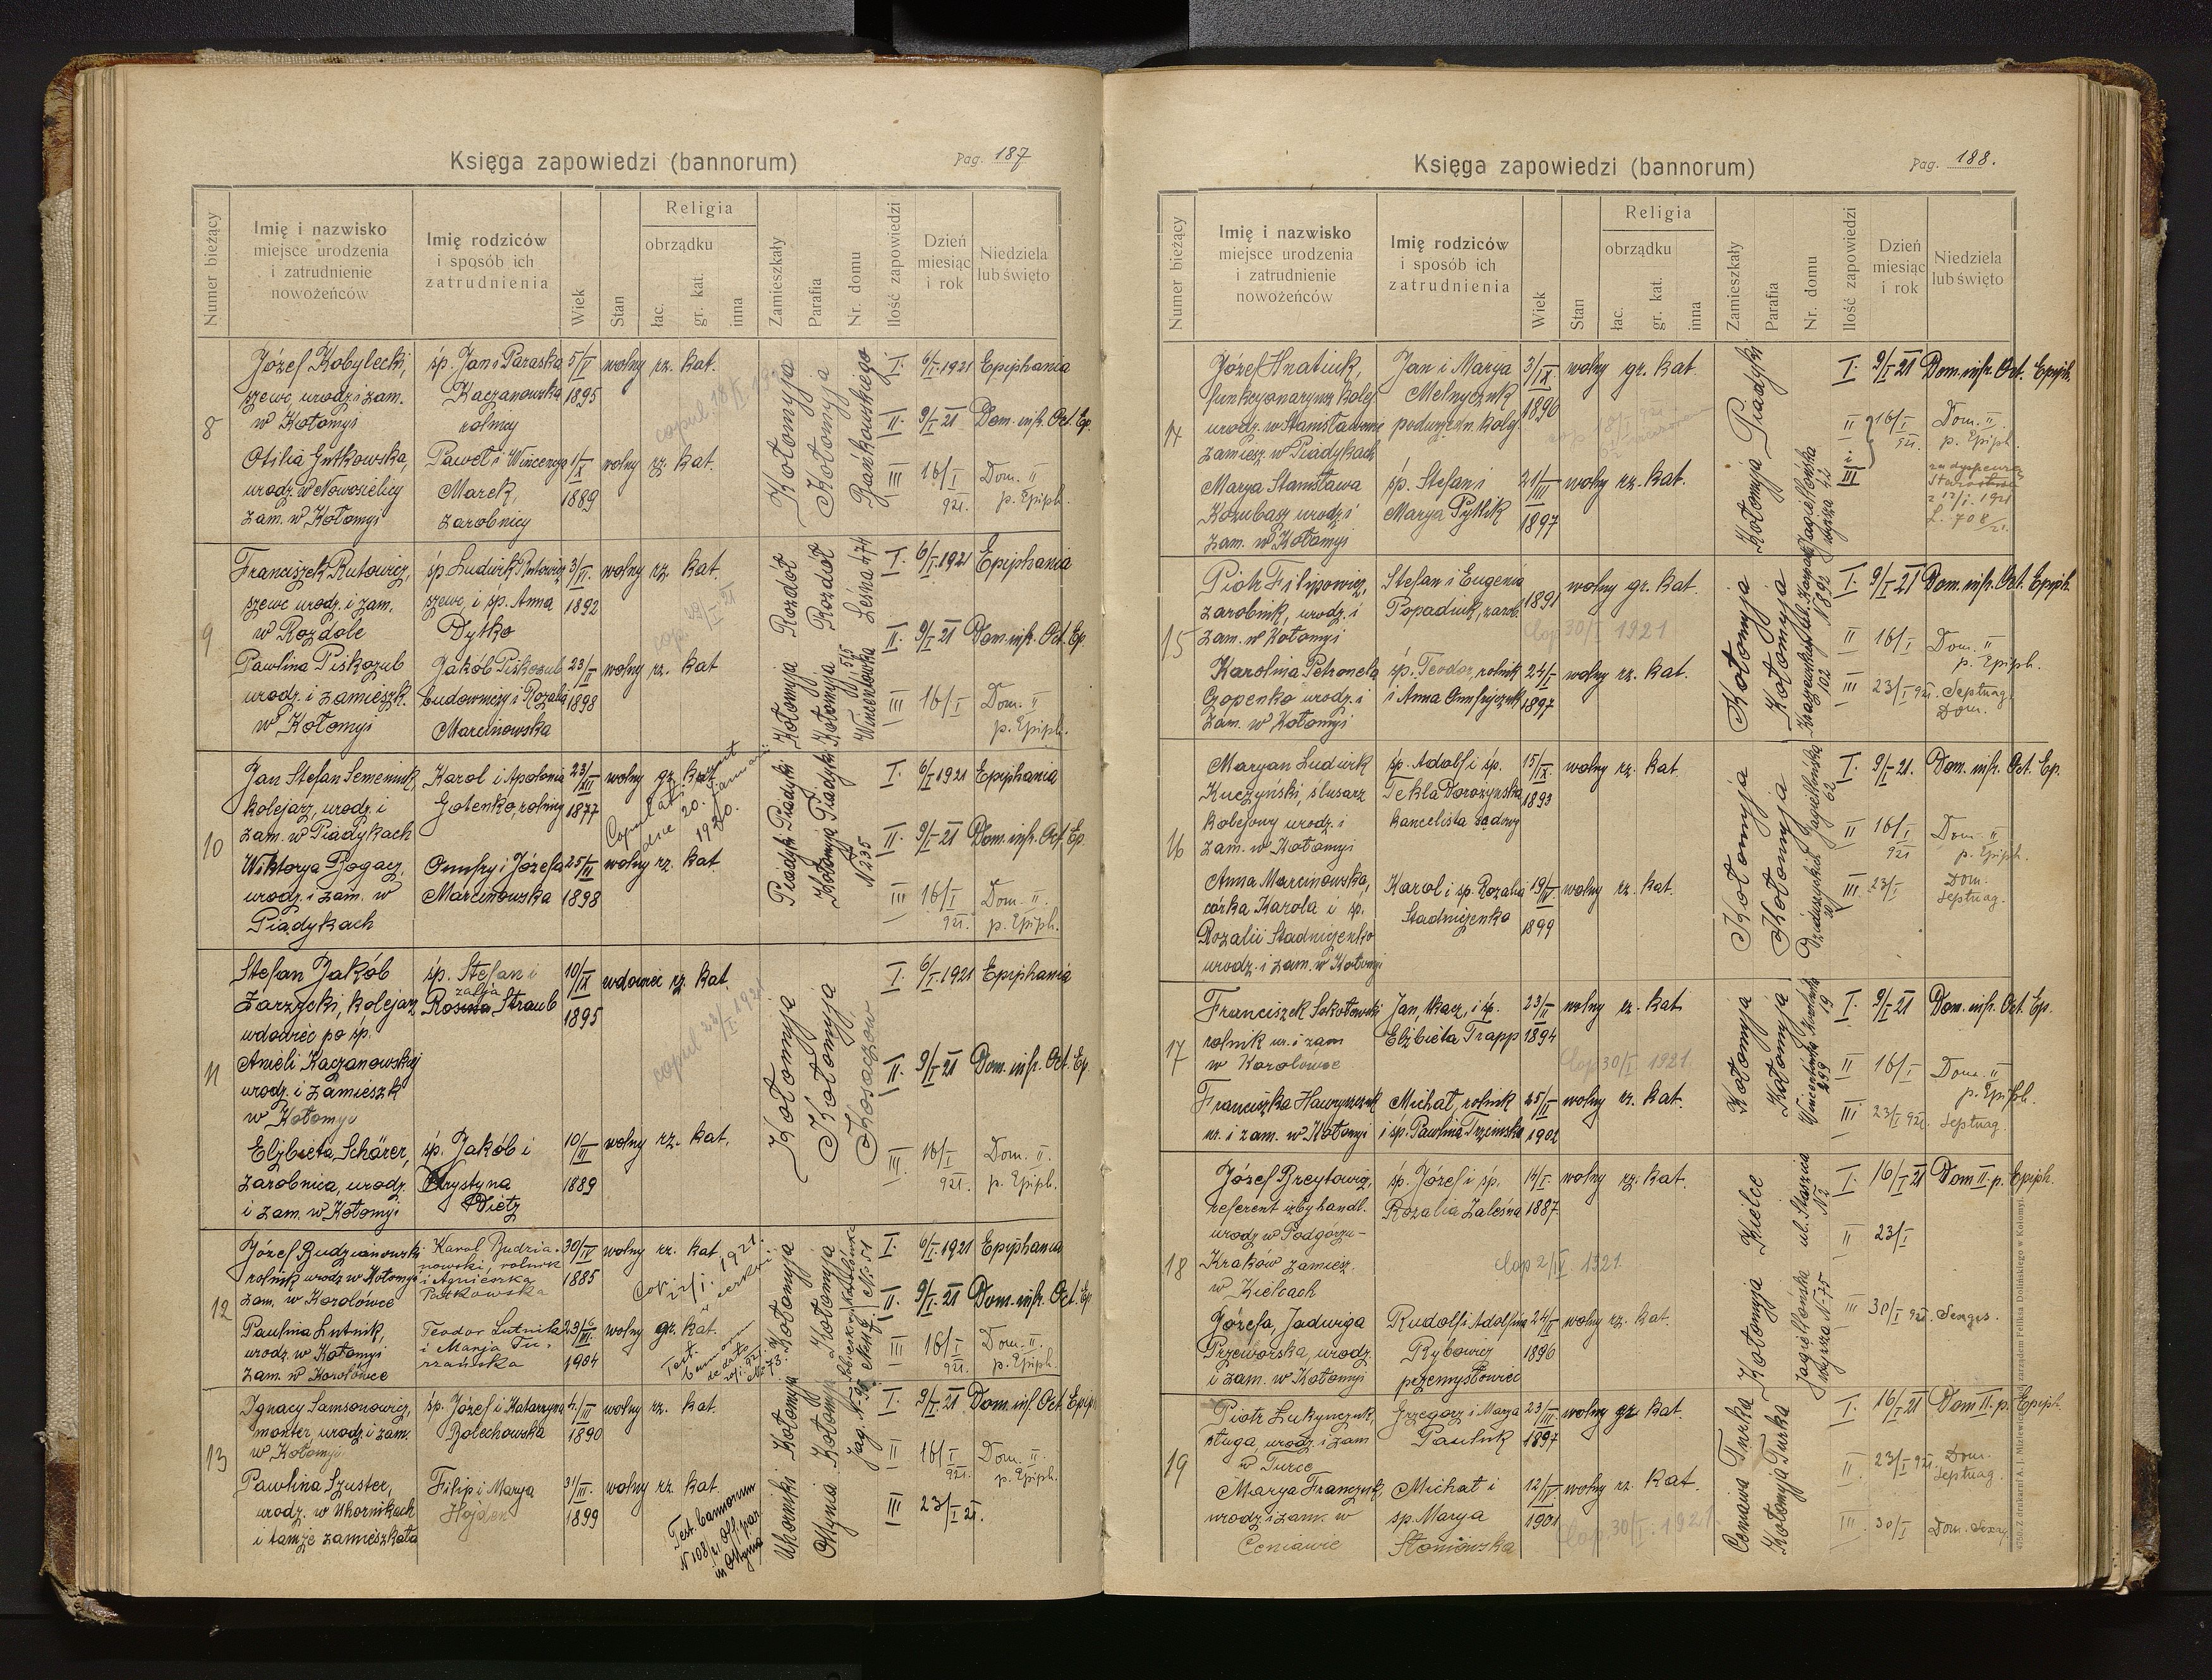 Księga zapowiedzi (bannorum)
Pag. 187
Numer bieżący
Imię i nazwisko
miejsce urodzenia
i zatrudnienie
nowożeńców
Imię rodziców
i sposób ich
zatrudnienia
Wiek
Stan
Religia
obrządku
łac.
gr. kat.
inna
Zamieszkały
Parafia
Nr. domu
Ilość zapowiedzi
Dzień
miesiąc
i rok
Niedziela
lub święto
8
Józef Kobylecki,
szewc, urodz. i zam.
w Kołomyi
śp. Jan i Paraska
Kaczanowska
rolnicy
5/V
1895
wolny rz. kat.
copul. 18/I
Otilia Gutkowska,
urodz. w Nowosielicy
zam. w Kołomyi
Paweł i Wincenya
Marek,
zarobnicy
1/X
1889
wolny rz. kat.
Kołomyja
Kołomyja
I. 6/I 1921 Epiphania
II. 9/I 21 Dom. infr. Oct. Ep.
III 16/I 921. Dom. II p. Epiph.
9
Franciszek Rutowicz,
szewc urodz. i zam.
w Rozdole
śp Ludwik Rutowicz
szewc, i śp. Anna
Dytko
3/II.
1892
wolny rz. kat.
Pawlina Piskozub
urodz. i zamieszk.
w Kołomyi
Jakób Piskozub
budowniczy i Rozalia
Marcinowska
23/II
1898
wolny rz. kat
Kołomyja Rozdół
Kołomyja Rozdół
Wincentówka 515 Leśna 474
I. 6/I 1921 Epiphania
II. 9/I 21 Dom. infr. Oct. Ep.
III 16/I Dom. II p. Epiph.
10
Jan Stefan Semeniuk
kolejarz, urodz. i
zam. w Piadykach
Karol i Apolonia
Gotenko, rolnicy
23/XII
1877
wolny gz. kat
Wiktorya Bogacz,
urodz. i zam. w
Piądykach
Onufry i Józefa
Marcinowska
25/III
1898
wolny rz. kat
Piadyki Piadyki
Kołomyja Piadyki
N 235
I. 6/I 1921 Epiphania
II. 9/I 21 Dom. infr. Oct. Ep.
III 16/I 921. Dom. II. p. Epiph.
11
Stefan Jakób
Zarzycki, kolejarz
wdowiec po śp.
Anieli Kaczanowskiej
urodz. i zamieszk
w Kołomyi
śp. Stefan i
Rozalja Straub
10/IX
1895
wdowiec rz. kat.
copul 23/I 1921
Elżbieta Schärer,
zarobnica, urodz.
i zam. w Kołomyi
śp. Jakób i
Krystyna
Dietz
10/III
1889
wolny rz. kat.
Kołomyja
Kołomyja
Kosaczów
I. 6/I 1921 Epiphania
II. 9/I 21 Dom. infr. Oct. Ep
III. 16/I 921. Dom. II. p. Epiph.
12
Józef Budzianowski
rolnik urodz w Kołomyi
zam. w Korolówce
Karol Budzia-
nowski, rolnik
i Agnieszka
Putkowska
30/IV
1885
wolny rz. kat
Cop. 22/I. 1921.
w cerkwi
Paulina Lutnik,
urodz. w Kołomyi
zam. w Korolówce
Teodor Lutnik
i Marja Tu-
rzańska
23/III.
1904
wolny gr. kat.
Kołomyja
Kołomyja
I. 6/I 1921 Epiphania
II. 9/I. 21 Dom. infr. Oct. Ep
III 16/I 921. Dom. II. p. Epiph.
13
Ignacy Samsonowicz,
monter, urodz i zam.
w Kołomyi
śp. Józef i Katarzyna
Bolechowska
4/III
1890
wolny rz. kat.
Pawlina Szuster,
urodz. w Uhornikach
i tamże zamieszkała
Filip i Marya
Hojder
31/III.
1899
wolny rz. kat.
Test. bannorum
N 108/21 Off. par.
in Ottynia
Uhorniki Kołomyja
Ottynia Kołomyja
I. 9/I. 21 Dom. inf. Oct. Epiph
II 16/I 921. Dom. II. p. Epiph.
III 23/I 21.
Księga zapowiedzi (bannorum)
Pag. 188.
Numer bieżący
Imię i nazwisko
miejsce urodzenia
i zatrudnienie
nowożeńców
Imię rodziców
i sposób ich
zatrudnienia
Wiek
Stan
Religia
obrządku
łac.
gr. kat.
inna
Zamieszkały
Parafia
Nr. domu
Ilość zapowiedzi
Dzień
miesiąc
i rok
Niedziela
lub święto
14
Józef Hnatiuk,
funkcyonaryusz kolej
urodz. w Stanisławowie
zamiesz. w Piadykach
Jan i Marya
Melnyczuk
podurzędn. kolej.
3/IX
1896
wolny gr. kat.
Marya Stanisława
Kozubasz urodz. i
zam. w Kołomyi
śp. Stefan i
Marya Pyllik
21/III
1897
wolny rz. kat.
Kołomyja Piadyki
I. 9/I 21 Dom. infr. Oct. Epiph.
II i III 16/I 921. Dom. II. p. Epiph.
za dyspenzą
Starostwa
z 12/I. 1921
L. 708/21.
15
Piotr Filipowicz,
zarobnik, urodz. i
zam. w Kołomyi
Stefan i Eugenia
Popadiuk, zarob.
1891
wolny gr. kat.
Cop 30/I 1921
Karolina Petronela
Czopenko urodz. i
zam. w Kołomyi
śp. Teodor, rolnik
i Anna Onufryczuk
24/I
1897
wolny rz. kat.
Kołomyja
Kołomyja
I. 9/I 21 Dom. infr. Oct. Epiph.
II 16/I Dom. II p. Epiph.
III 23/I 921. Septuag. Dom.
16
Maryan Ludwik
Kuczyński, ślusarz
kolejowy urodz. i
zam. w Kołomyi
śp. Adolf i śp.
Tekla Dorożyńska
kancelista sądowy
15/IX.
1893
wolny rz. kat
Anna Marcinowska,
córka Karola i śp.
Rozalii Stadniczenko
urodz. i zam. w Kołomyi
Karol i śp. Rozalia
Stadniczenko
19/IV
1899
wolny rz. kat.
Kołomyja
Kołomyja
Dzieduszyckich 20 Jagiellońska 62
I. 9/I 21. Dom. infr. Oct. Ep.
II 16/I 921 Dom. II p. Epiph.
III. 23/I Dom. Septuag.
17
Franciszek Sokołowski
rolnik ur. i zam
w Korolówce
Jan, tkacz, i śp.
Elżbieta Trapp
23/II
1894
wolny rz. kat.
Cop 30/I 1921.
Franciszka Hawryszczuk
ur. i zam. w Kołomyi
Michał, rolnik
i śp. Pawlina Trzcinska
25/II
1902
wolny rz. kat.
Kołomyja
Kołomyja
I. 9/I 21 Dom. infr. Oct. Ep.
II 16/I Dom. II p. Epiph.
III 23/I 921. Septuag.
18
Józef Breytowicz,
referent izby handl.
urodz w Podgórzu-
Kraków zamiesz.
w Kielcach
śp. Józef i śp.
Rozalia Zaleśna
14/I.
1887
wolny rz. kat.
Cop 2/IV. 1921.
Józefa, Jadwiga
Przeworska, urodz.
i zam. w Kołomyi
Rudolf i Adolfina
Rybowicz
przemysłowiec
24/II
1896
wolny rz. kat.
Kołomyja Kielce
Jagiellońska wyższa N 75 ul. Staszica N 2
I. 16/I 21 Dom II. p. Epiph.
II 23/I
III 30/I 921. Sexages.
19
Piotr Lukynczuk,
sługa, urodz. i zam
w Turce
Grzegorz i Marya
Pauluk
23/III.
1897
wolny gr kat.
Marya Franczuk,
urodz i zam. w
Ceniawie
Michał i
śp. Marya
Słoniowska
12/IV
1901
wolny rz. kat.
Cop 30/I. 1921.
Ceniawa Turka
Kołomyja Turka
I. 16/I 21 Dom II. p. Epiph.
II. 23/I 921. Dom. Septuag.
III. 30/I Dom. Sexag.